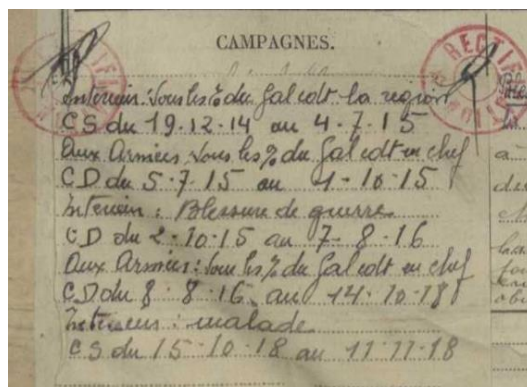 CAMPAGNES.
RECTIFI
Intérieur: Sous les % du Gal cdt la region
CS du 19.12.14 au 4.7.15
Aux Armées sous les % du Gal cdt en chef
CD du 5.7.15 au 1.10.15
Intérieur: Blessure de guerre
CD du 2.10.15 au 7.8.16
Aux Armées: Sous les % du Gal cdt en chef
CD du 8.8.16 au 14.10.18
Intérieur: malade
CS du 15.10.18 au 11.11.18